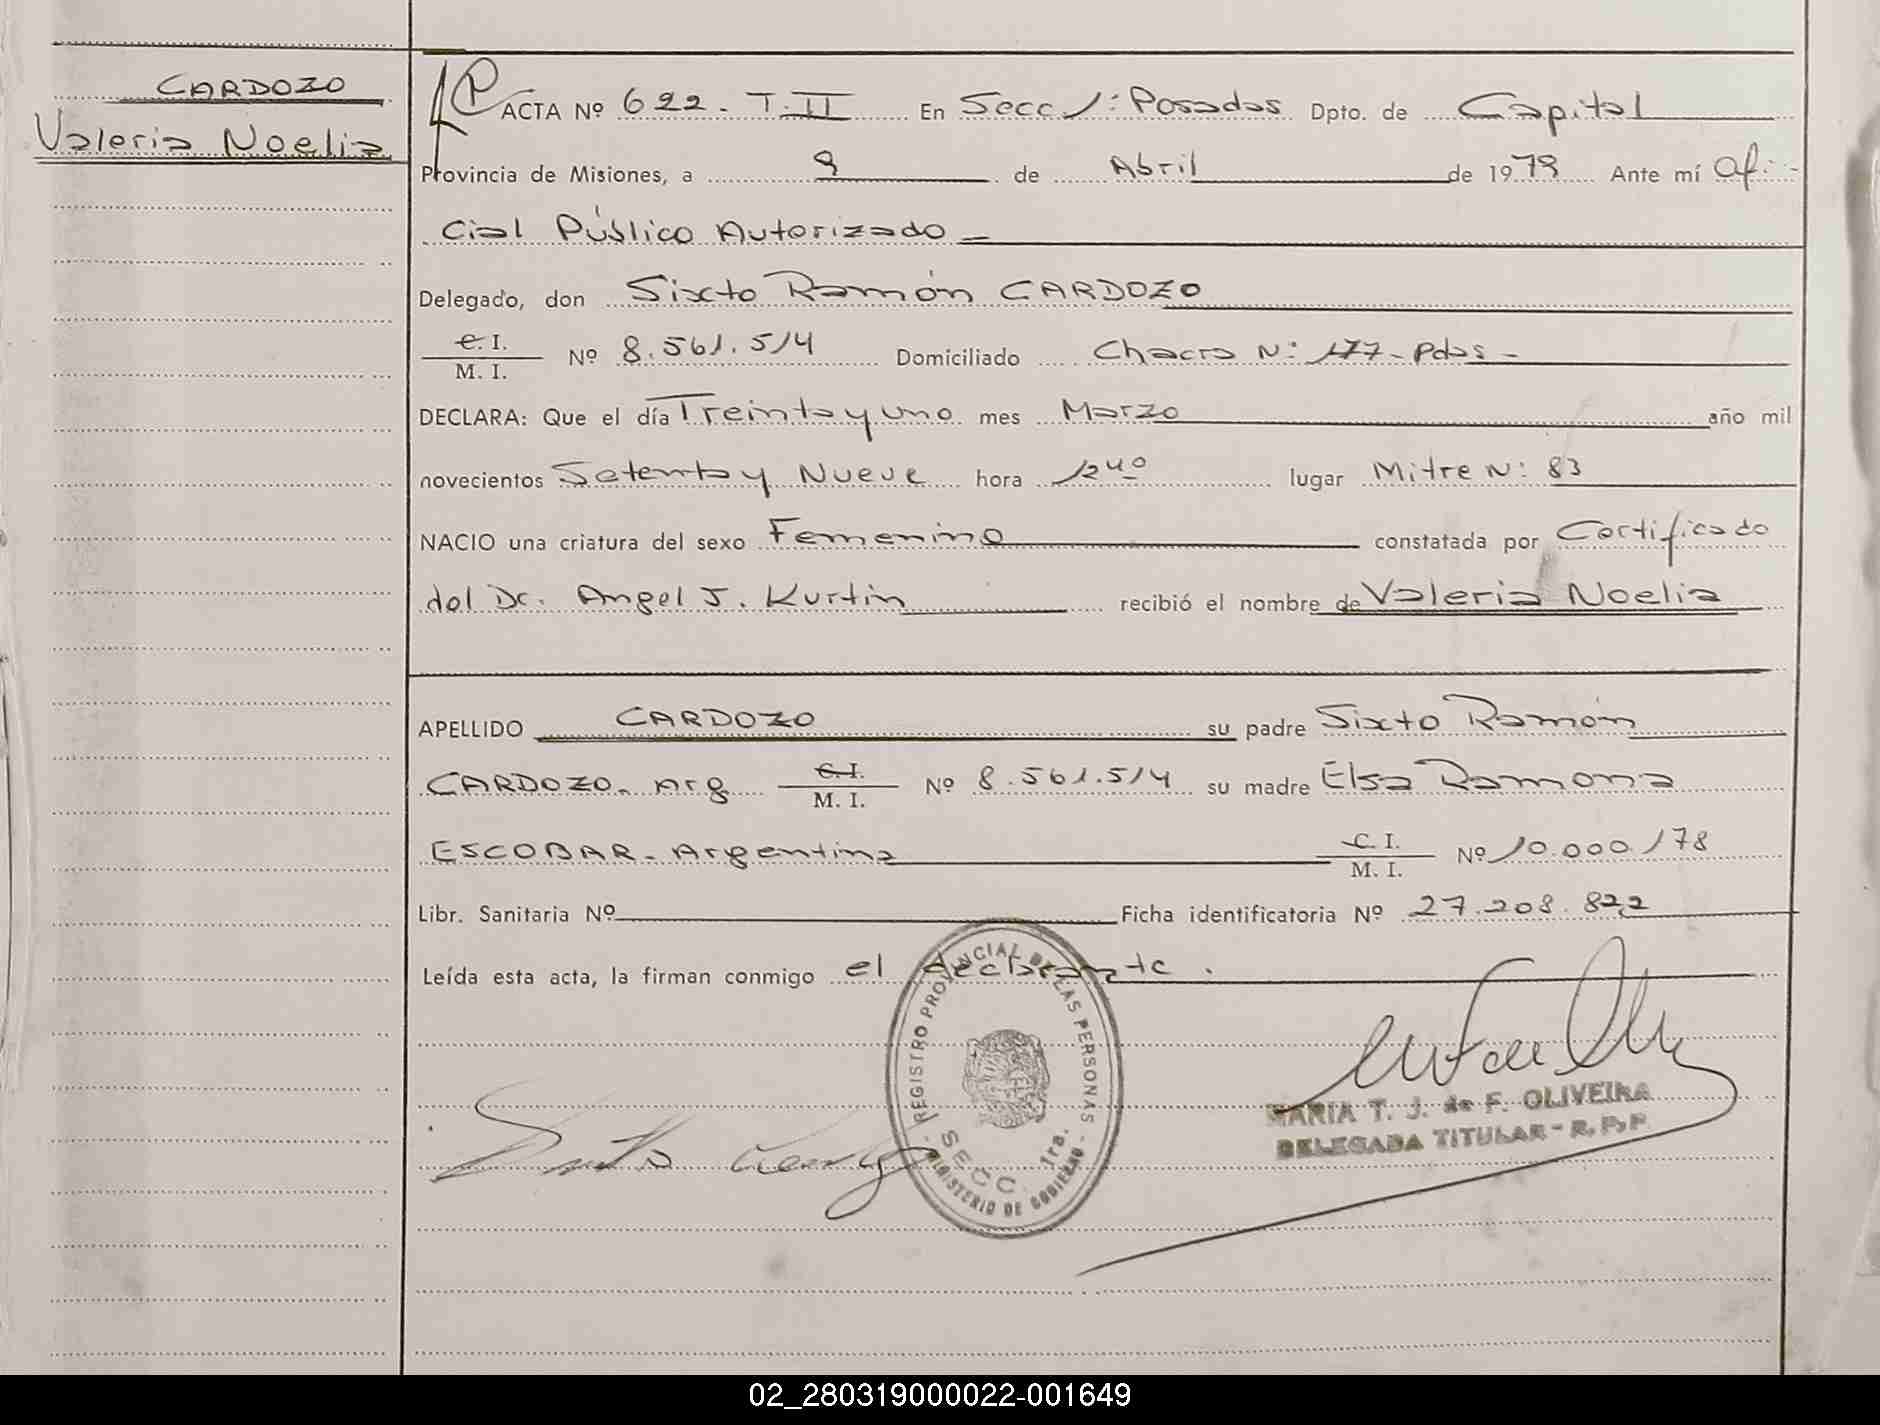 CARDOZO
Valeria Noelia
ACTA Nº 622 - T. II En Secc 1: Posadas Dpto. de Capital
Provincia de Misiones, a 9 de Abril de 1979 Ante mí Ofi-
cial Público Autorizado
Delegado, don Sixto Ramón CARDOZO
C. I.
M. I.
Nº 8.561.514 Domiciliado Chacra N: 177 - Pdas -
DECLARA: Que el día Treinta y uno mes Marzo año mil
novecientos Setenta y Nueve hora 12 40 lugar Mitre N: 83
NACIO una criatura del sexo Femenino constatada por Certificado
del Dr. Angel J. Kurtin recibió el nombre de Valeria Noelia
APELLIDO CARDOZO su padre Sixto Ramón
CARDOZO - Arg C. I. M. I. Nº 8.561.514 su madre Elsa Ramona
ESCOBAR - Argentina C. I. M. I. Nº 10.000.178
Libr. Sanitaria Nº Ficha identificatoria Nº 27.208.822
Leída esta acta, la firman conmigo el declarante.
REGISTRO PROVINCIAL DE LAS PERSONAS
SECC. 1ra.
MINISTERIO DE GOBIERNO
MARIA T. J. de F. OLIVEIRA
DELEGADA TITULAR - R. P. P.
02_280319000022-001649